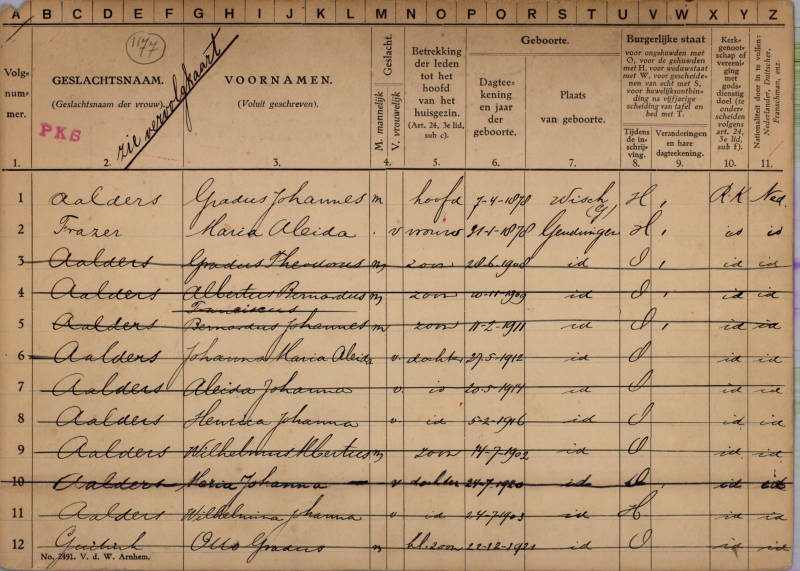 A B C D E F G H I J K L M N O P Q R S T U V W X Y Z
1177
zie vervolgkaart
PKS
Volg-
num-
mer.
GESLACHTSNAAM.
(Geslachtsnaam der vrouw).
VOORNAMEN.
(Voluit geschreven).
Geslacht.
M. mannelijk
V. vrouwelijk
Betrekking
der leden
tot het
hoofd
van het
huisgezin.
(Art. 24, 3e lid,
sub c).
Geboorte.
Dagtee-
kening
en jaar
der
geboorte.
Plaats
van geboorte.
Burgerlijke staat
voor ongehuwden met
O, voor de gehuwden
met H, voor weduwstaat
met W, voor gescheide-
nen van echt met S,
voor huwelijksontbin-
ding na vijfjarige
scheiding van tafel en
bed met T.
Tijdens
de in-
schrij-
ving.
Veranderingen
en hare
dagteekening.
Kerk-
genoot-
schap of
vereeni-
ging
met
gods-
dienstig
doel (te
onder-
scheiden
volgens
art. 24,
3e lid,
sub f).
Nationaliteit door in te vullen:
Nederlander, Duitscher,
Franschman, enz.
1. 2. 3. 4. 5. 6. 7. 8. 9. 10. 11.
1 Aalders Gradus Johannes m hoofd 7-4-1878 Wisch (G) H, R K Ned.
2 Frazer Maria Aleida v vrouw 21-1-1878 Gendringen H, id id
3 Aalders Gradus Theodorus m zoon 28-6-1908 id O, id id
4 Aalders Albertus Bernardus m zoon 10-11-1909 id O, id id
Franciscus
5 Aalders Bernardus Johannes m zoon 11-2-1911 id O, id id
6 Aalders Johanna Maria Aleida v. dochter 27-5-1912 id O id id
7 Aalders Aleida Johanna v. id 20-5-1914 id O id id
8 Aalders Henrica Johanna v. id 5-2-1916 id O id id
9 Aalders Wilhelmus Albertus m zoon 14-7-1902 id O id id
10 Aalders Maria Johanna v dochter 24-7-1920 id O, id id
11 Aalders Wilhelmina Johanna v id 24-7-1903 id H id id
12 Otto Gradus m kl. zoon 22-12-1921 id O id id
No. 2491. V. d. W. Arnhem.